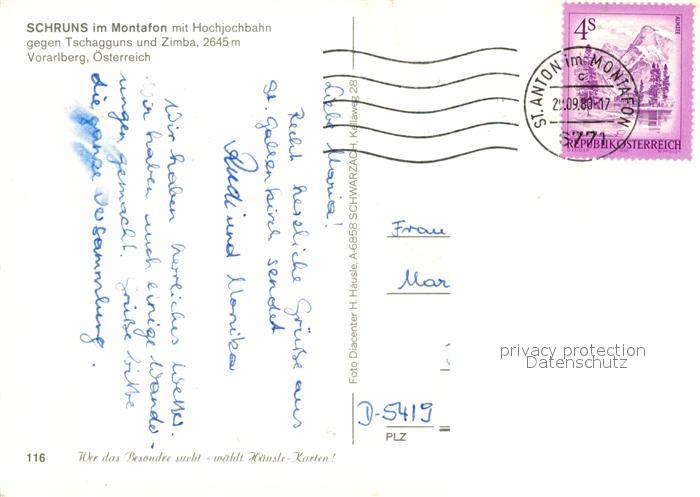 SCHRUNS im Montafon mit Hochjochbahn
gegen Tschagguns und Zimba, 2645 m
Vorarlberg, Österreich
Liebe Maria!
Recht herzliche Grüße aus
St. Gallenkirch sendet
Rudi und Monika
Wir haben herrliches Wetter.
Wir haben auch einige Wander-
ungen gemacht. Grüße bitte
die ganze Versammlung.
116
Wer das Besondre sucht - wählt Häusle-Karten!
Foto Diacenter H. Häusle, A-6858 SCHWARZACH, Kellaweg 28
4S
ALMSEE
REPUBLIK ÖSTERREICH
ST. ANTON im MONTAFON
c
.09.80-17
6771
Frau
Mar
D-5419
PLZ
privacy protection
Datenschutz